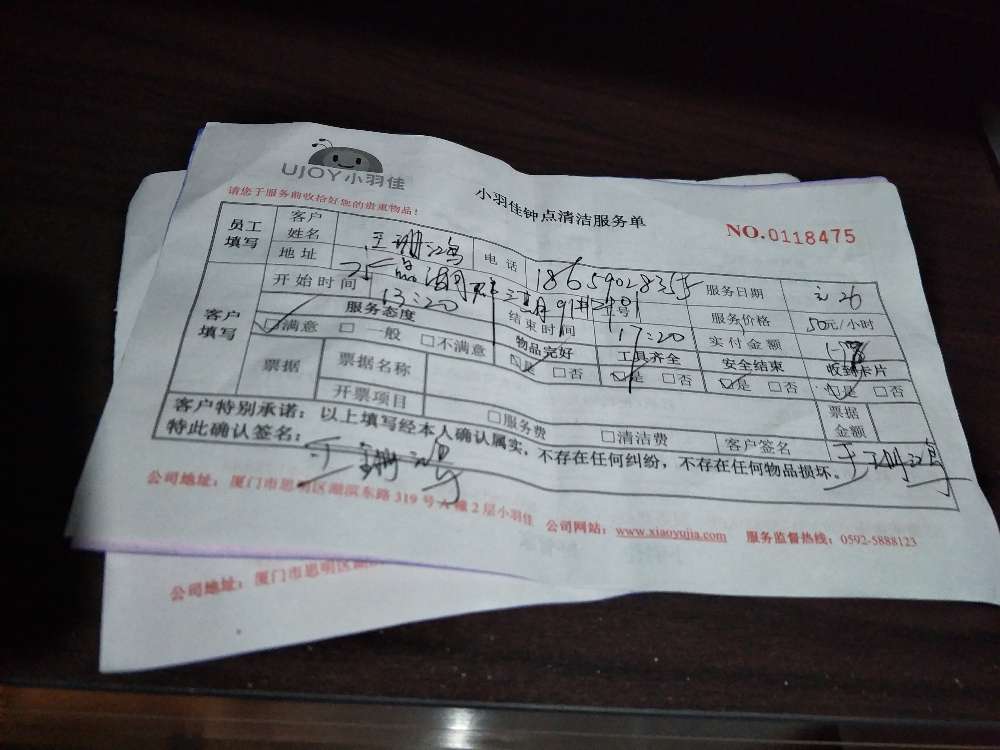 UJOY小羽佳
小羽佳钟点清洁服务单
请您于服务前收拾好您的贵重物品！
NO.0118475
员工填写 客户姓名 电话 服务日期
地址 服务价格 50元/小时
开始时间 13:20 结束时间 17:20 实付金额
客户填写 服务态度 物品完好 工具齐全 安全结束 收到卡片
☑满意 □一般 □不满意 ☑是 □否 ☑是 □否 ☑是 □否 ☑是 □否
票据 票据名称 票据金额
开票项目 □服务费 □清洁费 客户签名
客户特别承诺：以上填写经本人确认属实，不存在任何纠纷，不存在任何物品损坏。
特此确认签名：
公司地址：厦门市思明区湖滨东路319号A幢2层小羽佳 公司网站：www.xiaoyujia.com 服务监督热线：0592-5888123
公司地址：厦门市思明区